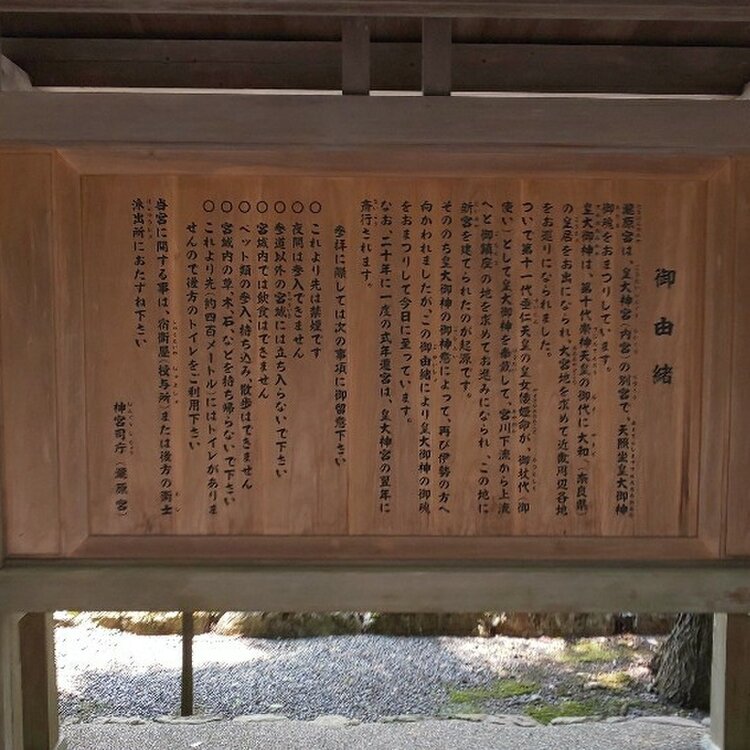 御由緒
瀧原宮は、皇大神宮(内宮)の別宮で、天照坐皇大御神
御魂をおまつりしています。
皇大御神は、第十代崇神天皇の御代に大和(奈良県)
の皇居をお出になられ、大宮地を求めて近畿周辺各地
をお巡りになられました。
ついで第十一代垂仁天皇の皇女倭姫命が、御杖代(御
使い)として皇大御神を奉戴して、宮川下流から上流
へと御鎮座の地を求めてお進みになられ、この地に
新宮を建てられたのが起源です。
そののち皇大御神の御神慮によって、再び伊勢の方へ
向かわれましたが、この御由緒により皇大御神の御魂
をおまつりして今日に至っています。
なお、二十年に一度の式年遷宮は、皇大神宮の翌年に
斎行されます。
参拝に際しては次の事項に御留意下さい
○これより先は禁煙です
○夜間は参入できません
○参道以外の宮域には立ち入らないで下さい
○宮域内では飲食はできません
○ペット類の参入、持ち込み、散歩はできません
○宮域内の草、木、石、などを持ち帰らないで下さい
○これより先(約四百メートル)にはトイレがありま
せんので後方のトイレをご利用下さい
当宮に関する事は、宿衛屋(授与所)または後方の衛士
派出所におたずね下さい
神宮司庁(瀧原宮)